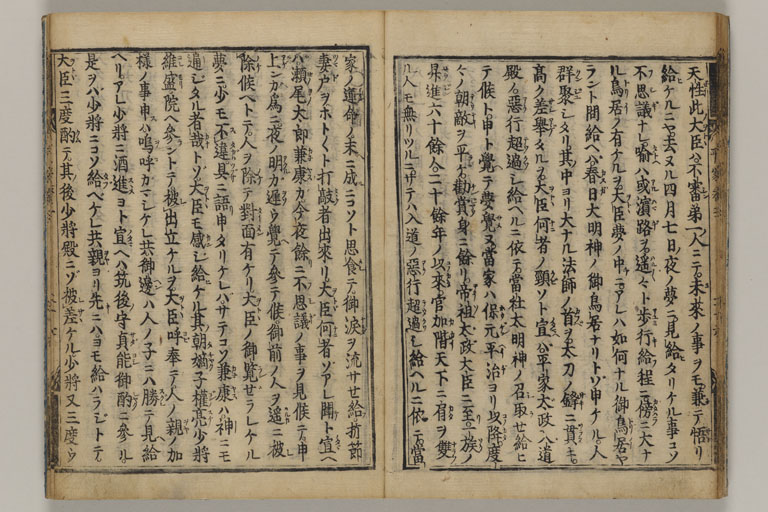 天性此大臣ハ不審第一人ニテ未來ノ事ヲモ兼テ悟リ
給ケルニヤ去ヌル四月七日ノ夜ノ夢ニ見給タリケル事コソ
不思議ナレ喩ハ或濱路ヲ遥々ト歩行給程ニ傍ニ大ナ
ル鳥居ノ有ケルヲ大臣夢ノ中ニアレハ如何ナル御鳥居ヤ
ラント問給ヘハ春日大明神ノ御鳥居ナリトソ申ケル人
群聚シタリ其中ヨリ大ナル法師ノ首ヲ太刀ノ鋒ニ貫キ
高ク差舉タルヲ大臣何者ノ頸ソト宣ヘハ平家太政入道
殿ノ惡行超過シ給ヘルニ依テ當社太明神ノ召取セ給ヒ
テ候ト申ト覺テ夢覺ヌ當家ハ保元平治ヨリ以降度
々ノ朝敵ヲ平ケ勸賞身ニ餘リ帝祖太政大臣ニ至一族ノ
昇進六十餘人二十餘年ノ以來官加階天下ニ肩ヲ雙
ル人モ無リツルニサテハ入道ノ惡行超過シ給ヘルニ依テ當
家ノ運命ノ末ニ成ニコソト思食テ御淚ヲ流サセ給折節
妻戸ヲホトくト打敲者出來リ大臣何者ソアレ聞ト宣ヘ
ハ瀬尾太郎兼康カ今夜餘ニ不思議ノ事ヲ見候テ申
上ンカ爲ニ夜ノ明カ遲ウ覺テ參テ候御前ノ人ヲ遥ニ被
除候ヘトテ人ヲ除テ對面有ケリ大臣ノ御覽セラレケル
夢ニ少モ不違具ニ語申タリケレハサテコソ兼康ハ神ニモ
通シタル者哉トソ大臣モ感シ給ケレ其朝嫡子權亮少將
維盛院ヘ參ントテ被出立ケルヲ大臣呼奉テ人ノ親ノ加
樣ノ事申ハ嗚呼カマシケレ共御邊ハ人ノ子ニハ勝テ見給
ヘリアレ少將ニ酒進ヨト宣ヘハ筑後守貞能御酌ニ參ル
是ヲハ少將ニコソ給ヘケレ共親ヨリ先ニハヨモ給ハラシトテ
大臣三度酌テ其後少將殿ニソ被差ケル少將又三度ウ